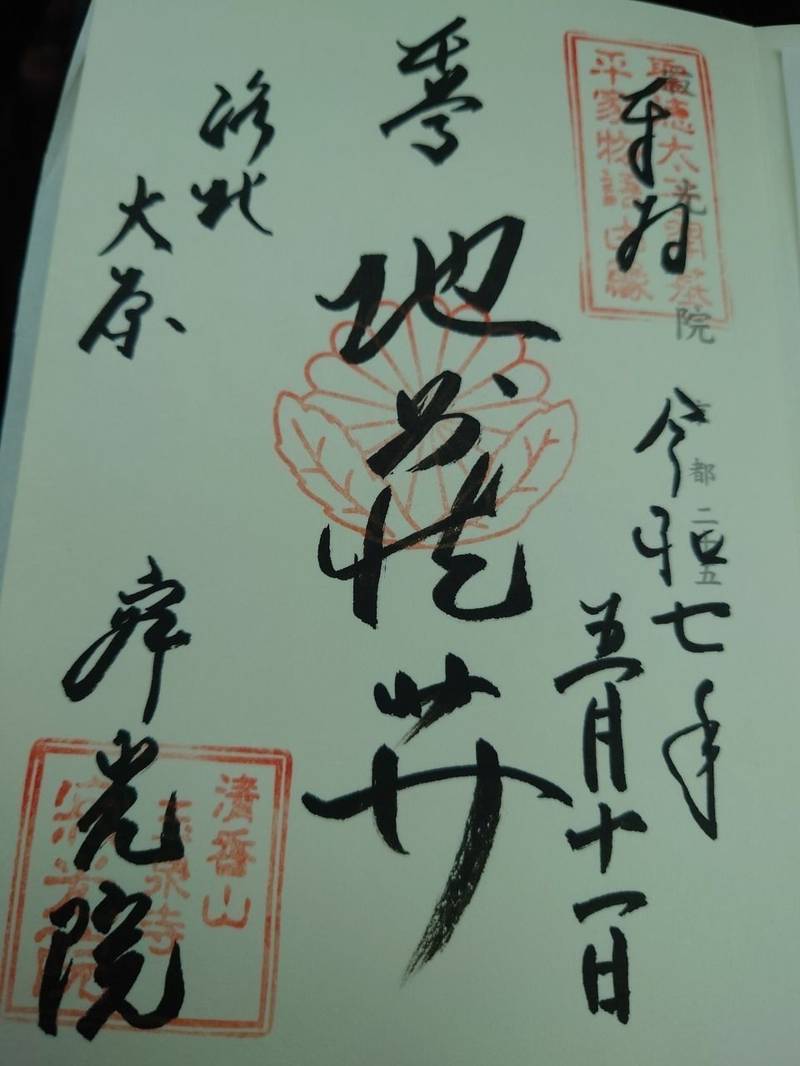 聖徳太子開基
平家物語由縁
奉拝
光院
都二十五
令和七年
五月十一日
地蔵𦬇
洛北
大原
寂光院
清香山
玉泉寺
寂光院